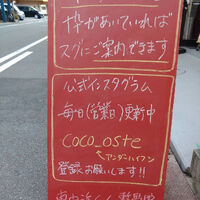 枠があいていれば
スグにご案内できます
公式インスタグラム
毎日(営業日)更新中
coco_oste
アンダーハイフン
登録お願いします!!